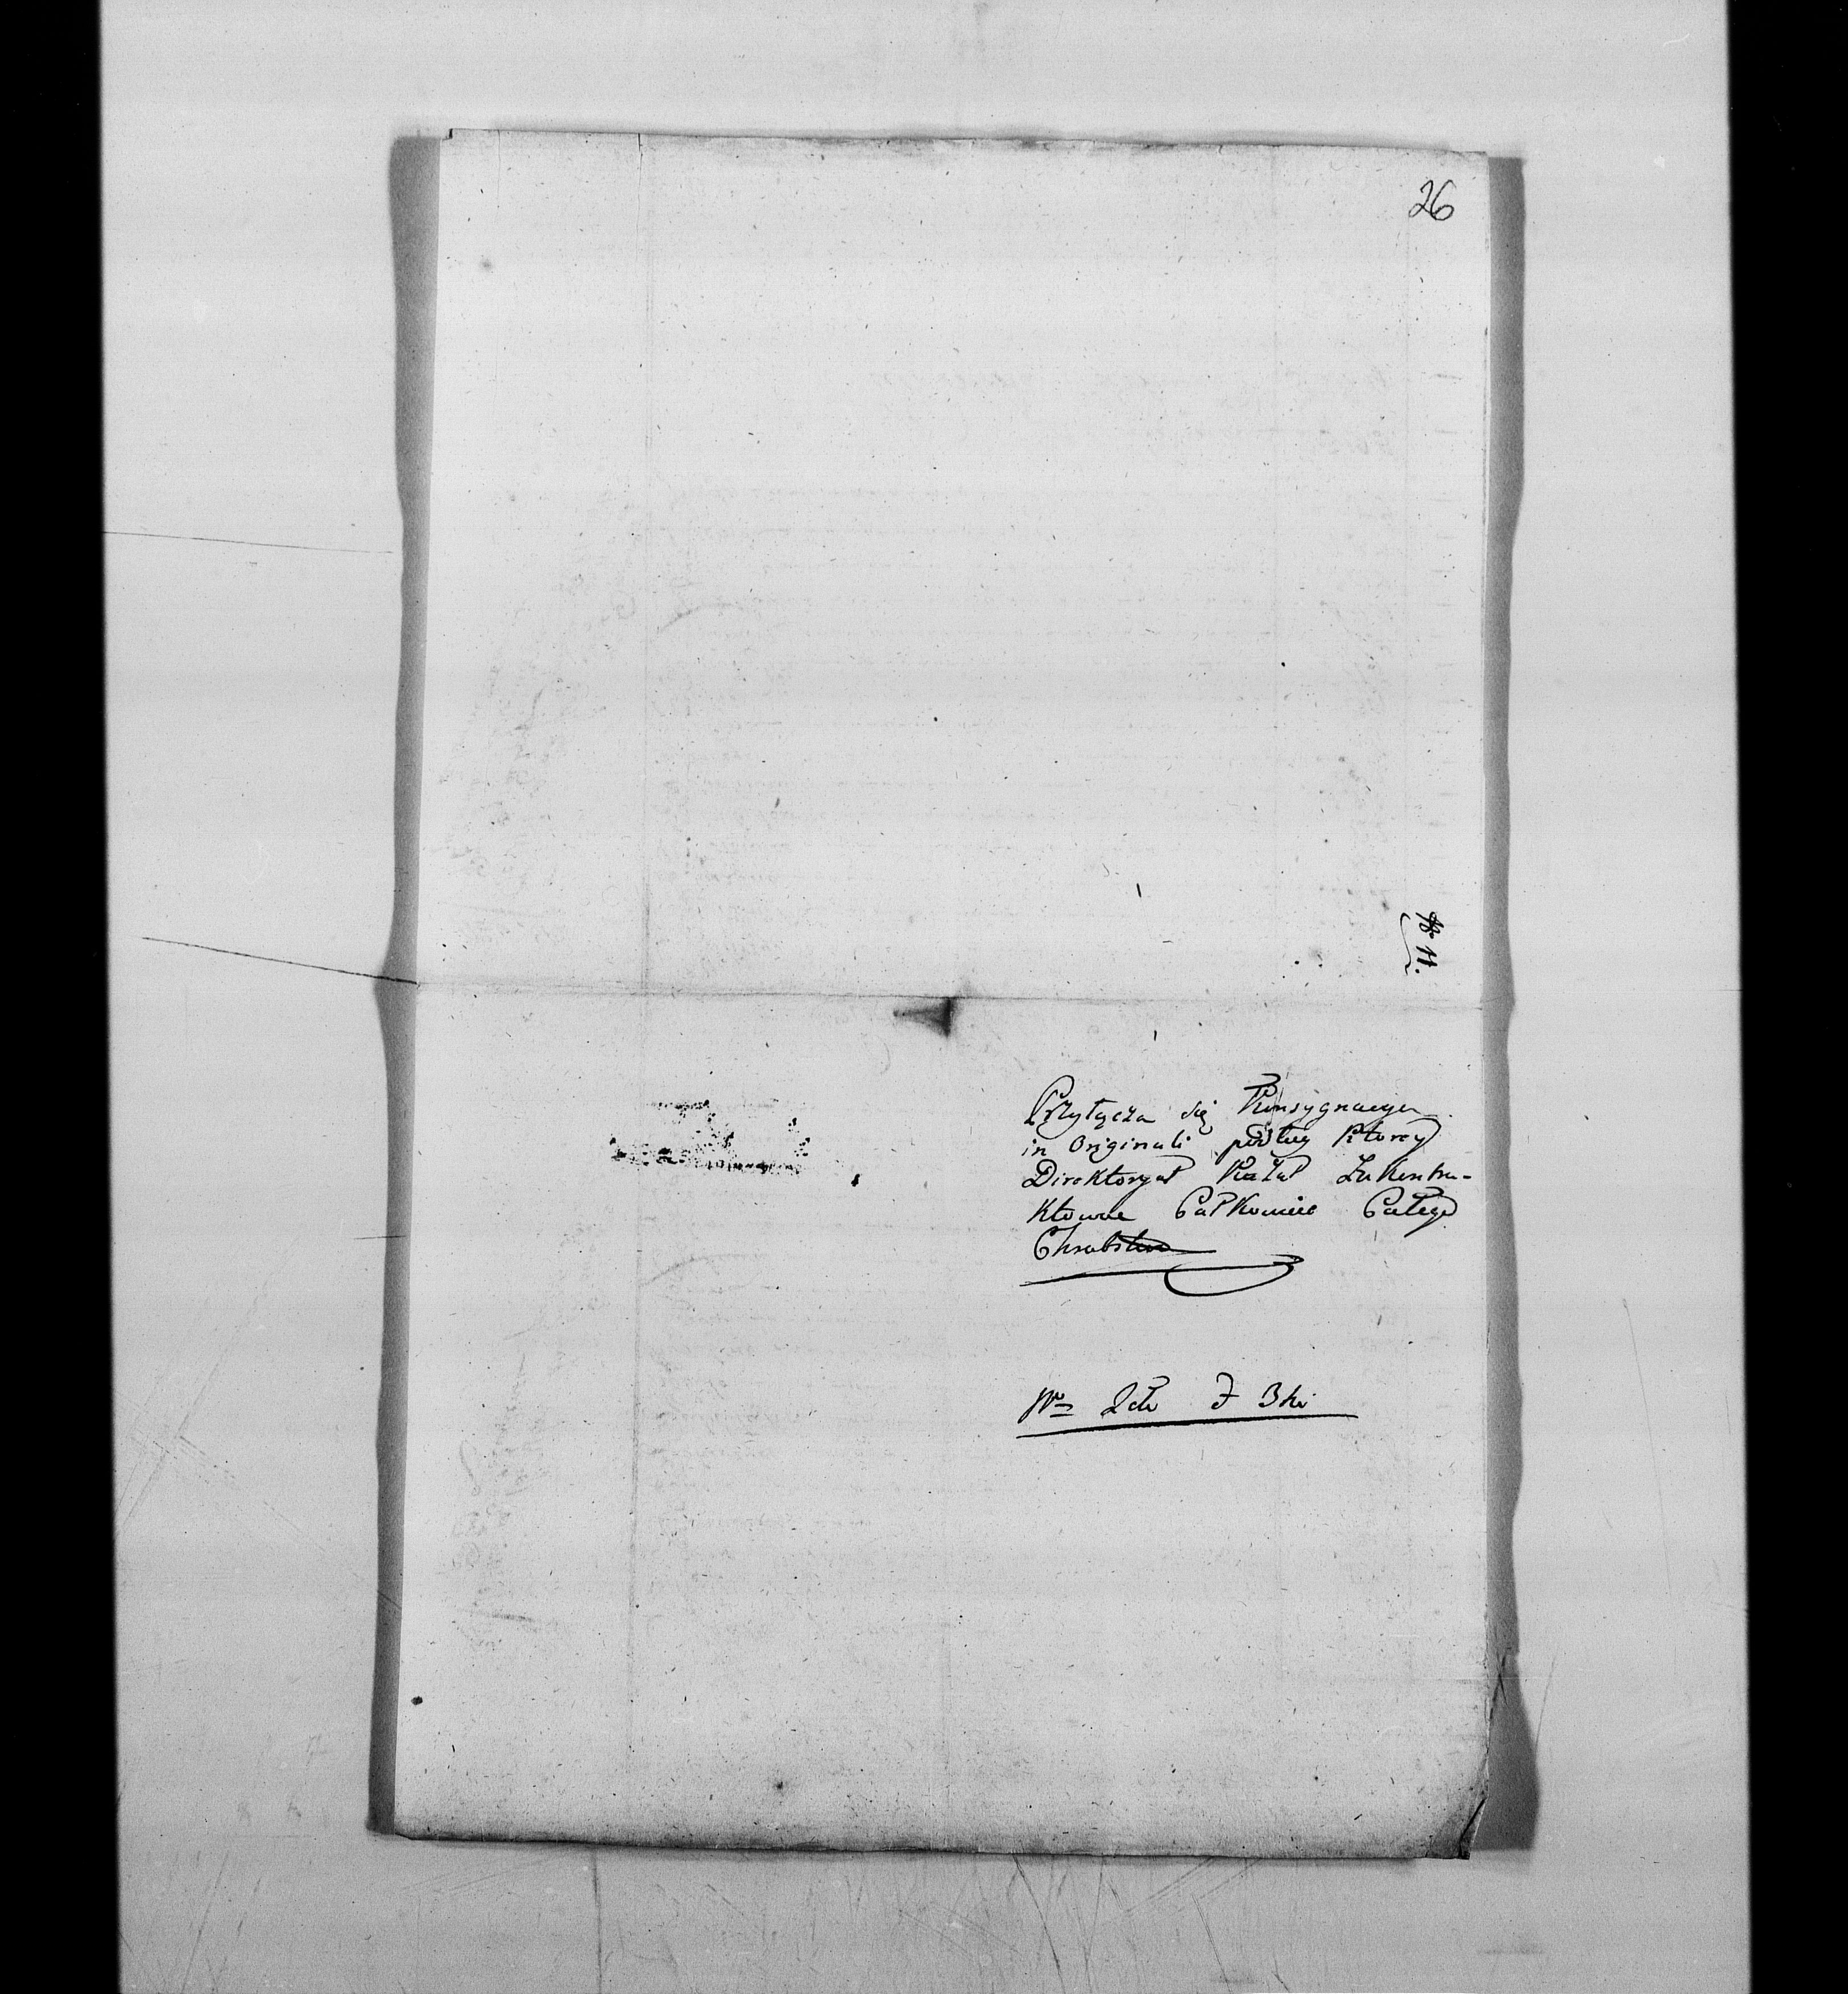 26
№ 11.
Przyłącza się Konsygnacya
in Originali podług Ktorey
Direktoryat Kazał Zakontra-
Ktowac Całkowicie Całego
Chrabstwa